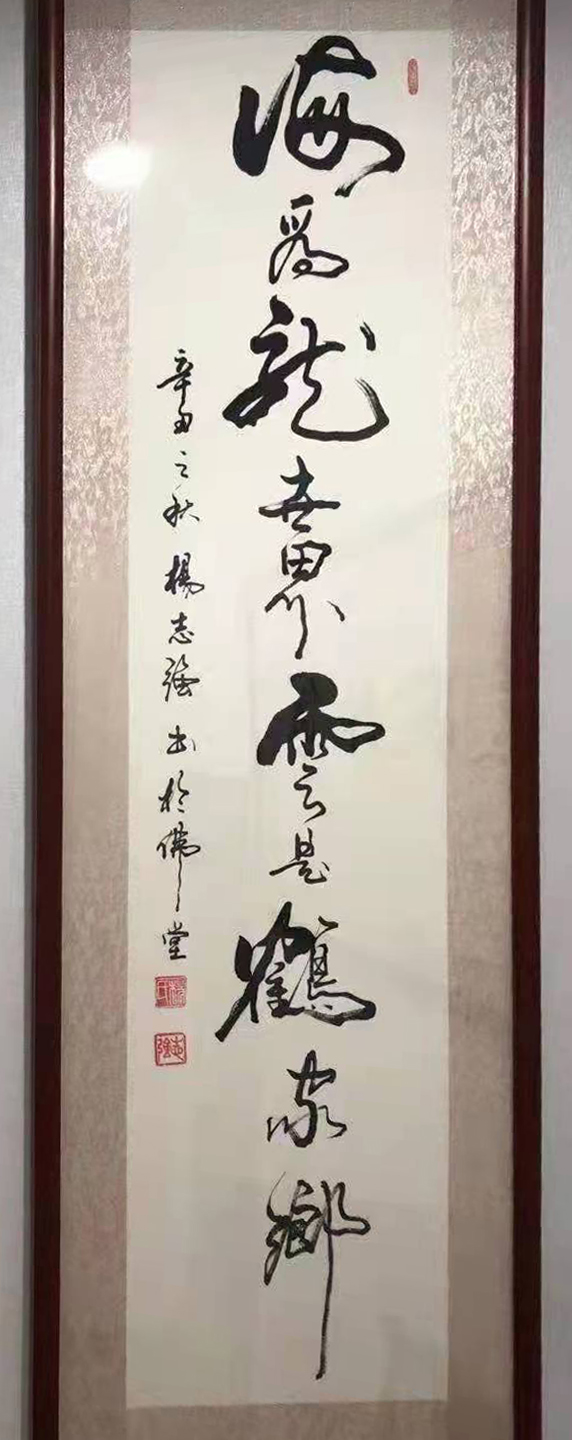 海為龍世界雲是鶴家鄉
辛丑之秋楊志強書於佛堂
志強